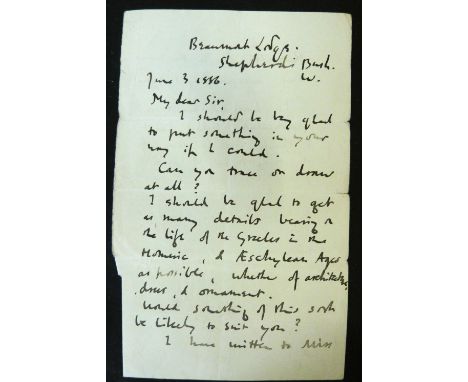 Beaumont Lodge.
Shepherds Bush.
W.
June 3 1886.
My dear Sir,
I should be very glad
to put something in your
way if I could.
Can you trace or draw
at all?
I should be glad to get
as many details bearing on
the life of the Greeks in the
Homeric, & Æschylean Ages
as possible, whether of architecture,
dress, & ornament.
Would something of this sort
be likely to suit you?
I have written to Miss